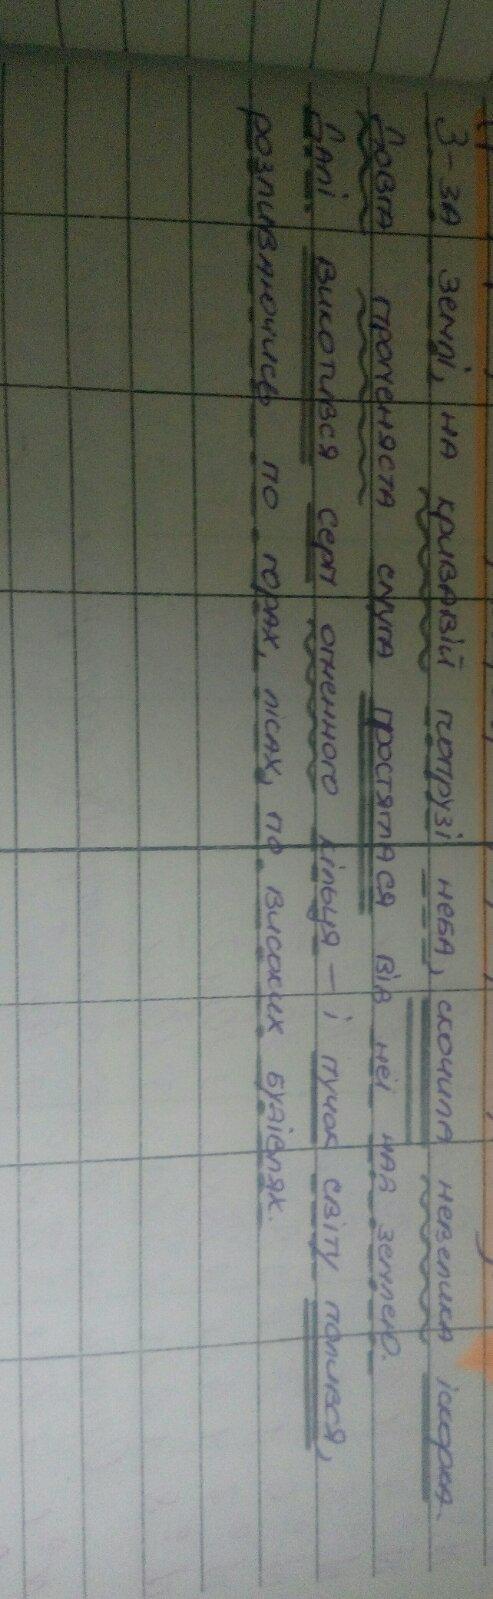 З-за землі, на кривавій попрузі неба, скочила невелика іскорка.
Довга променяста смуга простяглася від неї над землею.
Далі викотився серп огненного кільця – і пучок світу полився,
розливаючись по горах, лісах, по високих будівлях.